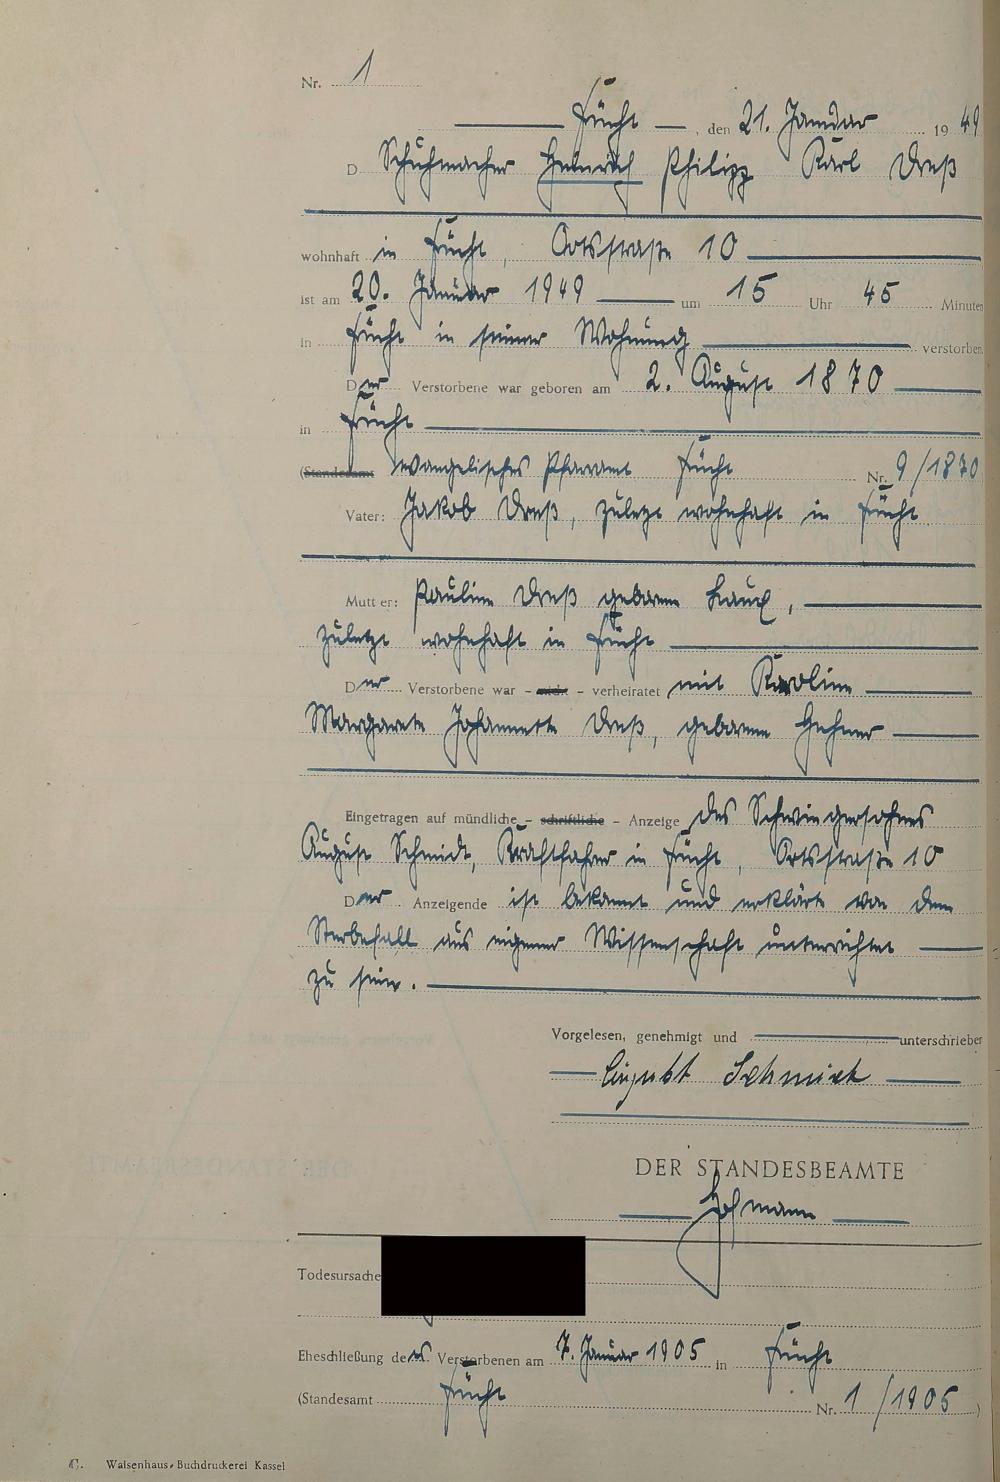 Nr. 1
Frücht, den 21. Januar 1949
D Schuhmacher Heinrich Philipp Karl Dreß
wohnhaft in Frücht, Ortsstraße 10
ist am 20. Januar 1949 um 15 Uhr 45 Minuten
in Frücht in seiner Wohnung verstorben
Der Verstorbene war geboren am 2. August 1870
in Frücht
(Standesamt evangelisches Pfarramt Frücht Nr. 9/1870
Vater: Jakob Dreß, zuletzt wohnhaft in Frücht
Mutter: Pauline Dreß geborene Laux,
zuletzt wohnhaft in Frücht
Der Verstorbene war – nicht – verheiratet mit Karoline
Margarete Johannette Dreß, geborene
Eingetragen auf mündliche – schriftliche – Anzeige des Schwiegersohnes
August Schmidt, Kraftfahrer in Frücht, Ortsstraße 10
Der Anzeigende ist bekannt und erklärte von dem
Sterbefall aus eigener Wissenschaft unterrichtet
zu sein.
Vorgelesen, genehmigt und unterschrieben
August Schmidt
DER STANDESBEAMTE
Hofmann
Todesursache
Eheschließung des Verstorbenen am 7. Januar 1905 in Frücht
(Standesamt Frücht Nr. 1/1905)
C. Waisenhaus-Buchdruckerei Kassel